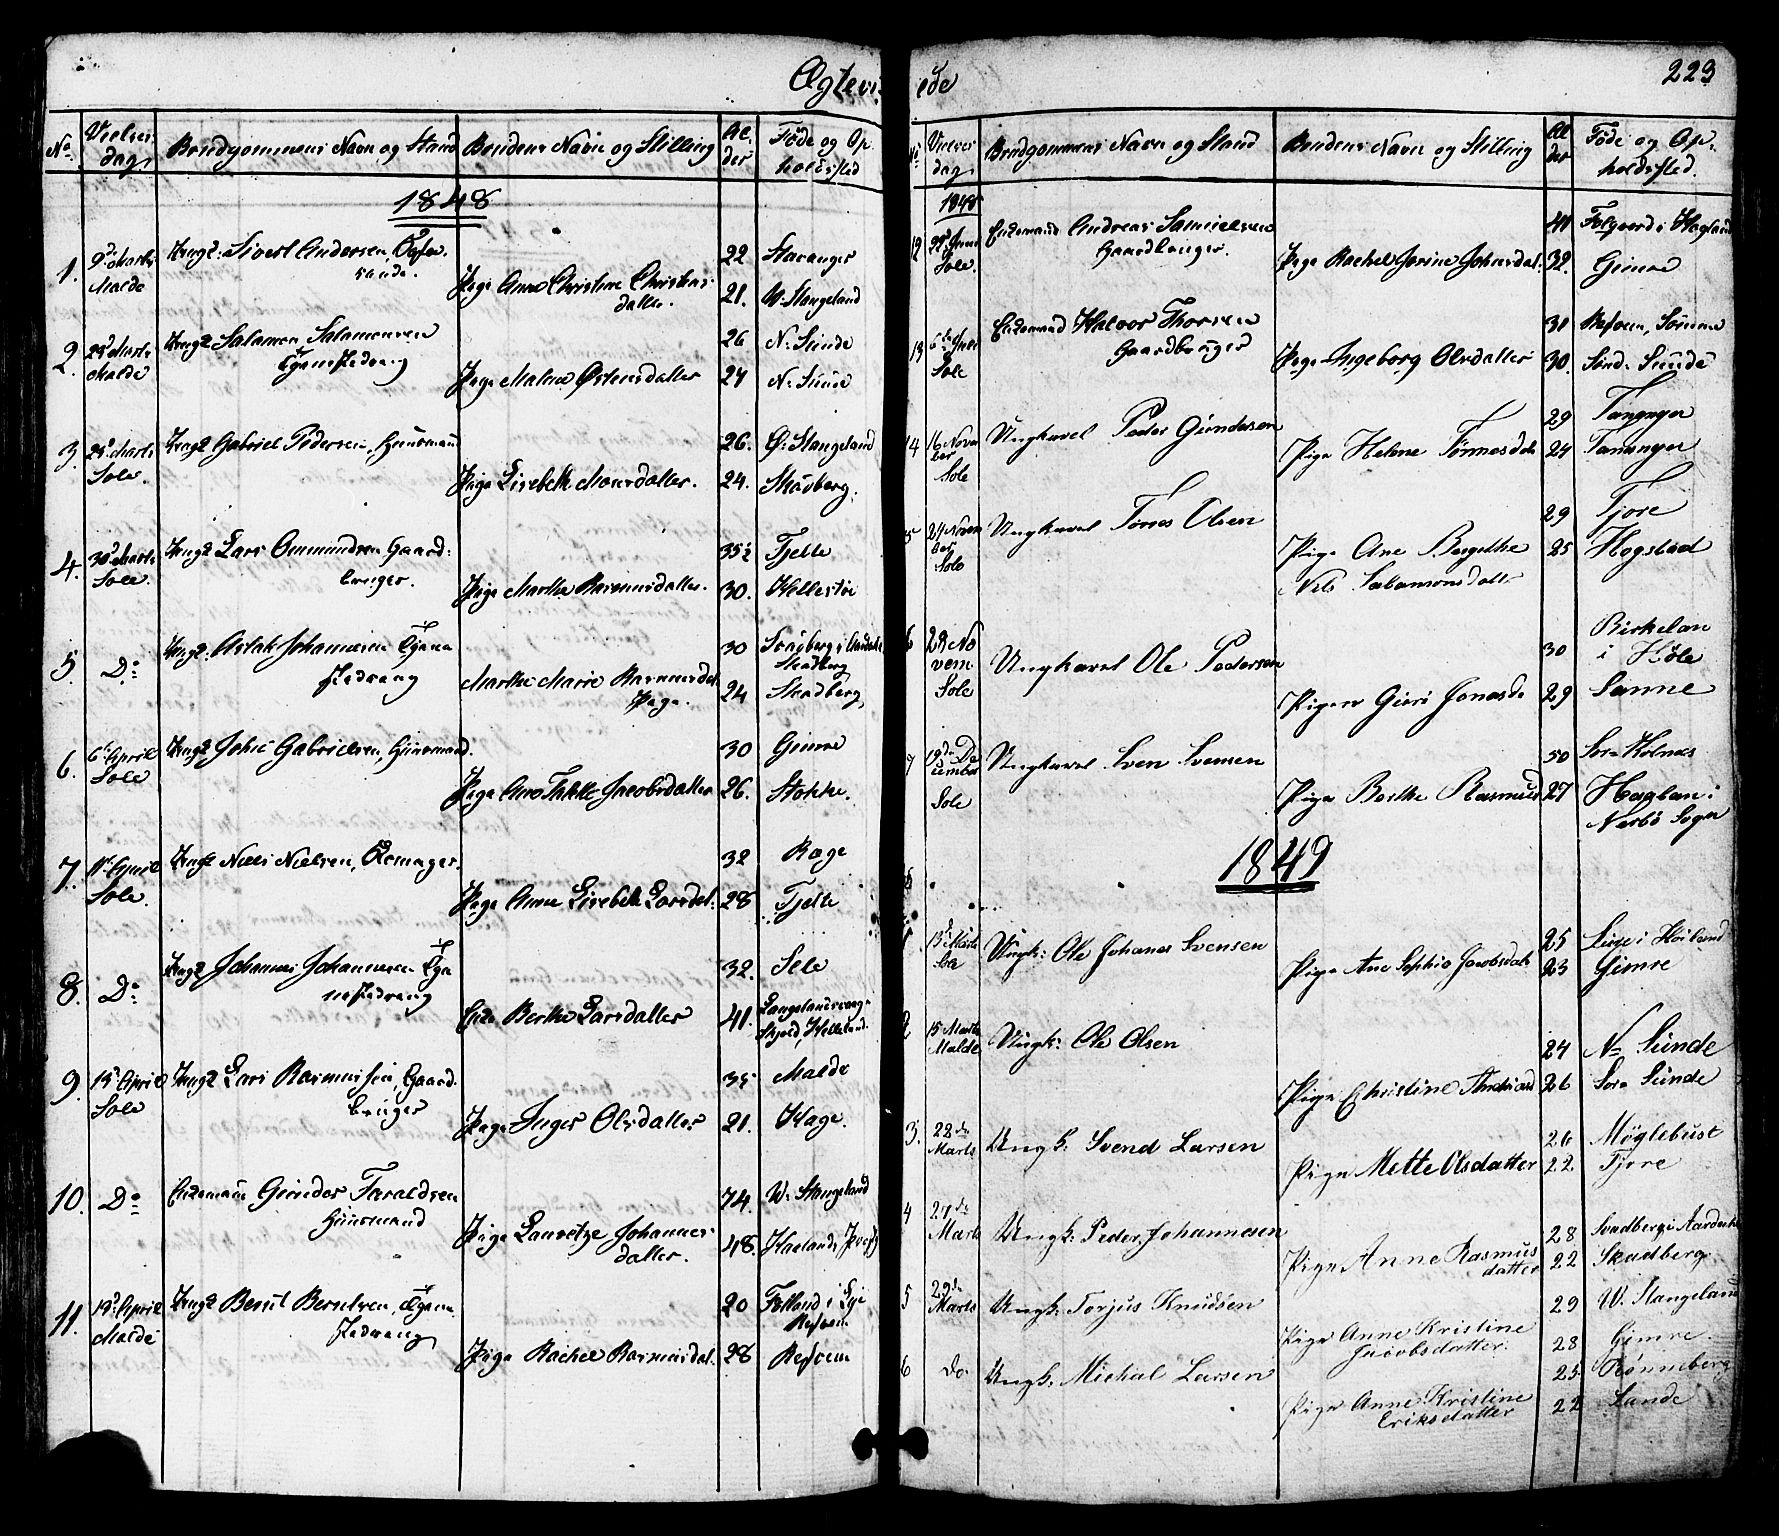 Ægtevi
No. Vielses dag, Brudgommens Navn og Stand Brudens Navn og Stilling Al- der Føde og Op- holdssted
1848
1. 9d Marts Malde Ungk: Sivert Andersen, 22 Stavanger
Pige Anne Christine Christens- datter. 21. W. Stangeland
2. 23d Marts Malde Ungk Salamon Salamonsen Tjenestedreng 26 N. Sunde
Pige Malene Østensdatter 24 N. Sunde
3. 25d Marts Sole. Ungk Gabriel Pedersen, Huusmand 26. Ø. Stangeland
Pige Lisebeth Monsdatter. 24. Skadberg.
4. 30d Marts Sole. Ungk Lars Ommundsen Gaard- bruger. 35½ Tjelte
Pige Marthe Rasmusdatter. 30. Hellestø
5. Do Ungk: Aslak Johannesen Tjene- stedreng 30 Skadberg
Marthe Marie Rasmusdat. Pige. 24 Skadberg
6. 6t April Sole Ungk Johs Gabrielsen, Huusmand. 30 Gimre
Pige Ane Jacobsdatter 26. Stokke.
7. 11t April Sole. Ungk Niels Nielsen, 32 Ræge
Pige Anne Lisebeth Larsdat. 28 Tjelte
8. Do Ungk Johannes Johannesen Tje- nestedreng 32. Sele
Enke Berthe Larsdatter 41.
9. 15d April Sole Ungk Lars Rasmussen, Gaard- bruger 35 Malde
Pige Inger Olsdatter 21. Hage.
10. Do Enkemand Gunder Taraldsen Huusmand 74. W. Stangeland
Pige Lauretze Johannes- datter. 48.
11. 19d April Malde Ungk Berut Berntsen, Tjene- stedreng 20
Pige Rachel Rasmusdat. 28
ede 223
No Vielses dag, Brudgommens Navn og Stand Brudens Navn og Stilling Al der Føde og Op- holdssted.
1848
12 Sole. Enkemand Andreas Samuelsen Gaardbruger. 41 Følgerød i Hagland
Pige Rachel Serine Johnsdat. 32. Gimre
13 Sole Enkemand Halvor Thorsen Gaardbruger 31
Pige Ingeborg Olsdatter 30. Sønd. Sunde
14 16 Novem ber Sole Ungkarl Peder Gundersen 29 Tananger
Pige Helene Tønnesdat 24 Tananger
5 24 Novem ber Sole Ungkarl Tønes Olsen 29 Tjore
Pige Ane Bergithe Nils Salamonsdatter 25 Hogstad
6 28 No vem- Sole Ungkarl Ole Pedersen 30 Birkelan i Høle
Pigen Guri Jonasda 29 Sanne
7 19de De cember Sole Ungkarl Sven Svensen 50 Sør Kolnes
Pige Berthe Rasmusd 27 Haglan i Nærbø Sogn
1849
13d Marts Ungk: Ole Johanes Svensen 25
Pige Ane Sophie Jacobsdat 23 Gimre
2 15 Marts Malde Ungk: Ole Olsen 24 N= Sunde
Pige Christine Andreasd 26 Sør Sunde
3. 22de Marts Ungk. Svend Larsen 26 Møglebust
Pige Mette Olsdatter 22 Tjore
4 27de Marts Ungk: Peder Johannesen 28
Pige Anne Rasmus datter 22 Skadberg
5 29de Marts Ungk. Torjus Knudsen 29 W. Stangeland
Pige Anne Kristine Jacobsdatter. 28 Gimre.
6 Do Ungk. Michal Larsen 25 Rønneberg
Pige Anne Kristine Eriksdatter 22 Sande